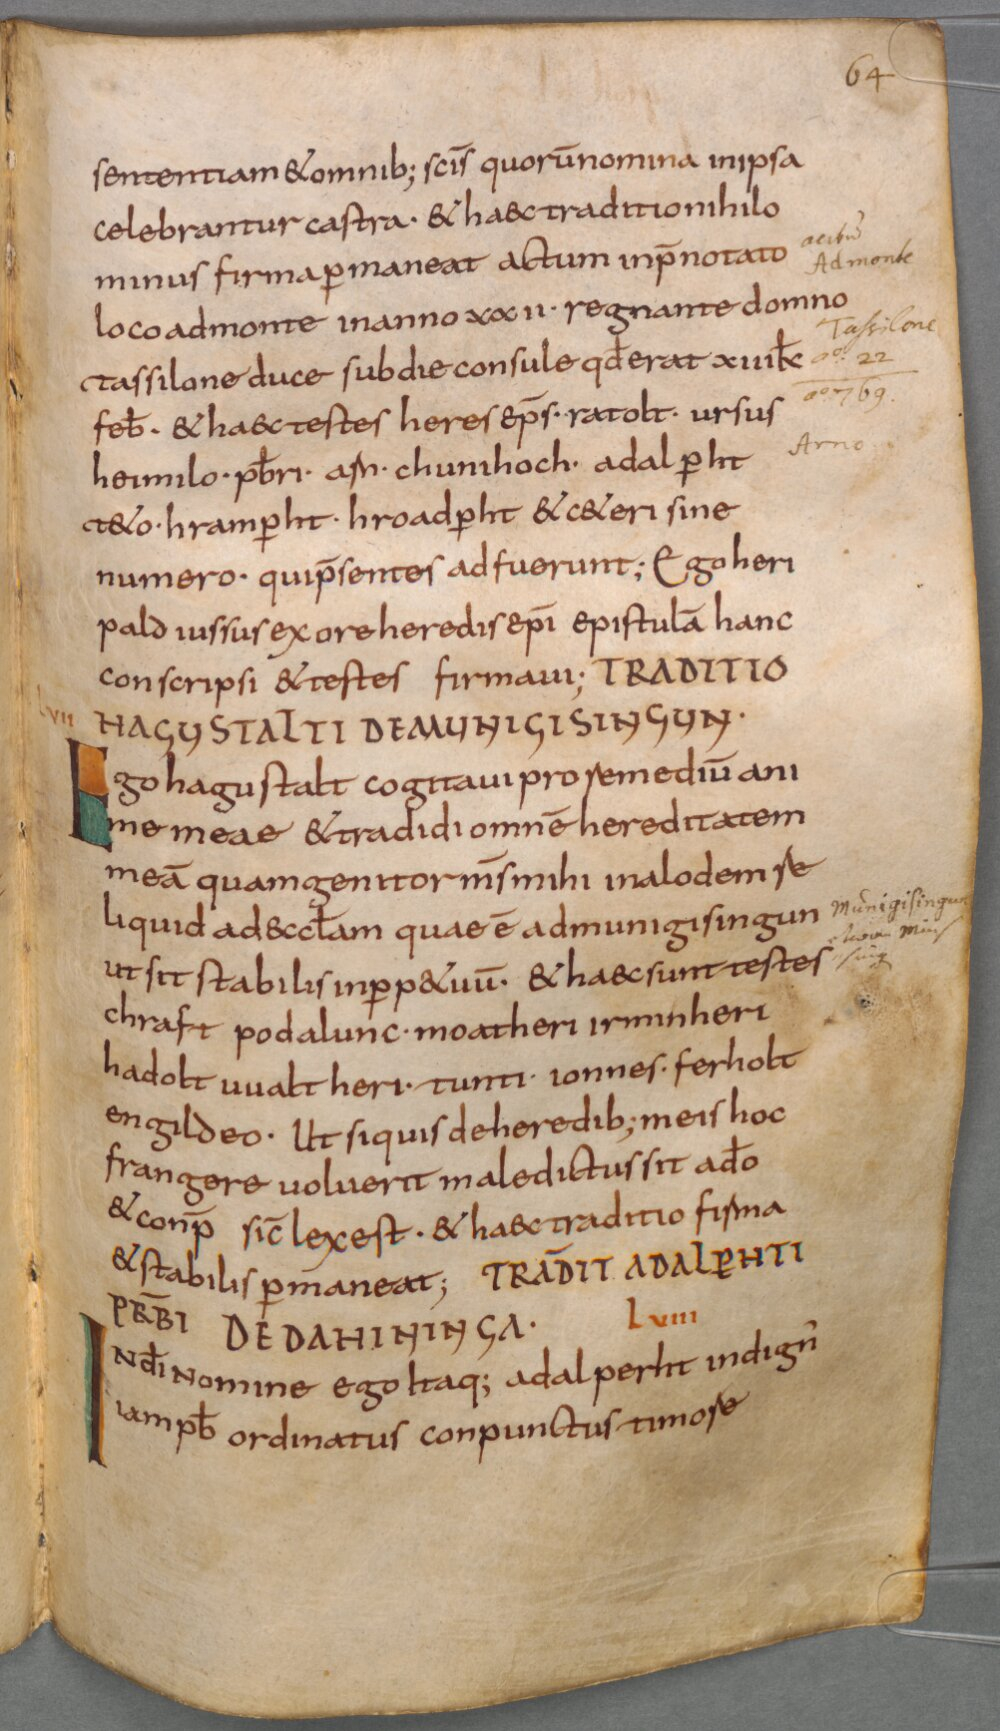 64
sententiam & omnib; scīs quorū nomina in ipsa
celebrantur castra · & haec traditio nihilo
minus firma p̄maneat actum in p̄notato
Admonte
loco admonte in anno xxii · regnante domno
Tassilone
tassilone duce sub die consule qđ erat xiiii kł
aō. 22
aō. 769.
feb̄ · & haec testes heres ep̄s · ratolt · ursus
Arno
heimilo · pb̄ri · arn · chunihoch · adalp̄ht
&o · hramp̄ht · hroadp̄ht & c&eri sine
numero · qui p̄sentes adfuerunt; Ego heri
pald iussus ex ore heredis ep̄i epistulā hanc
conscripsi & testes firmaui; TRADITIO
Lvii
HAGUSTALTI DE MUNIGISINGUN ·
Ego hagustalt cogitaui pro remediū ani
me meae & tradidi omnē hereditatem
meā quam genitor m̄s mihi in alodem re
liquid ad ęccłam quae ē ad munigisingun
Munigisingun
ut sit stabilis in p̄p&uū · & haec sunt testes
chraft podalunc · moatheri irminheri
hadolt uualtheri · tunti · ionnes · ferholt
engildeo · Ut si quis de heredib; meis hoc
frangere uoluerit maledictus sit a dō
& conp̄ sic̄ lex est · & haec traditio firma
& stabilis p̄maneat; TRAD̄IT ADALP̄HTI
PRB̄I DE DAHININGA · Lviii
IN dī nomine ego itaq; adalperht indign̄
iam pb̄ ordinatus conpunctus timore